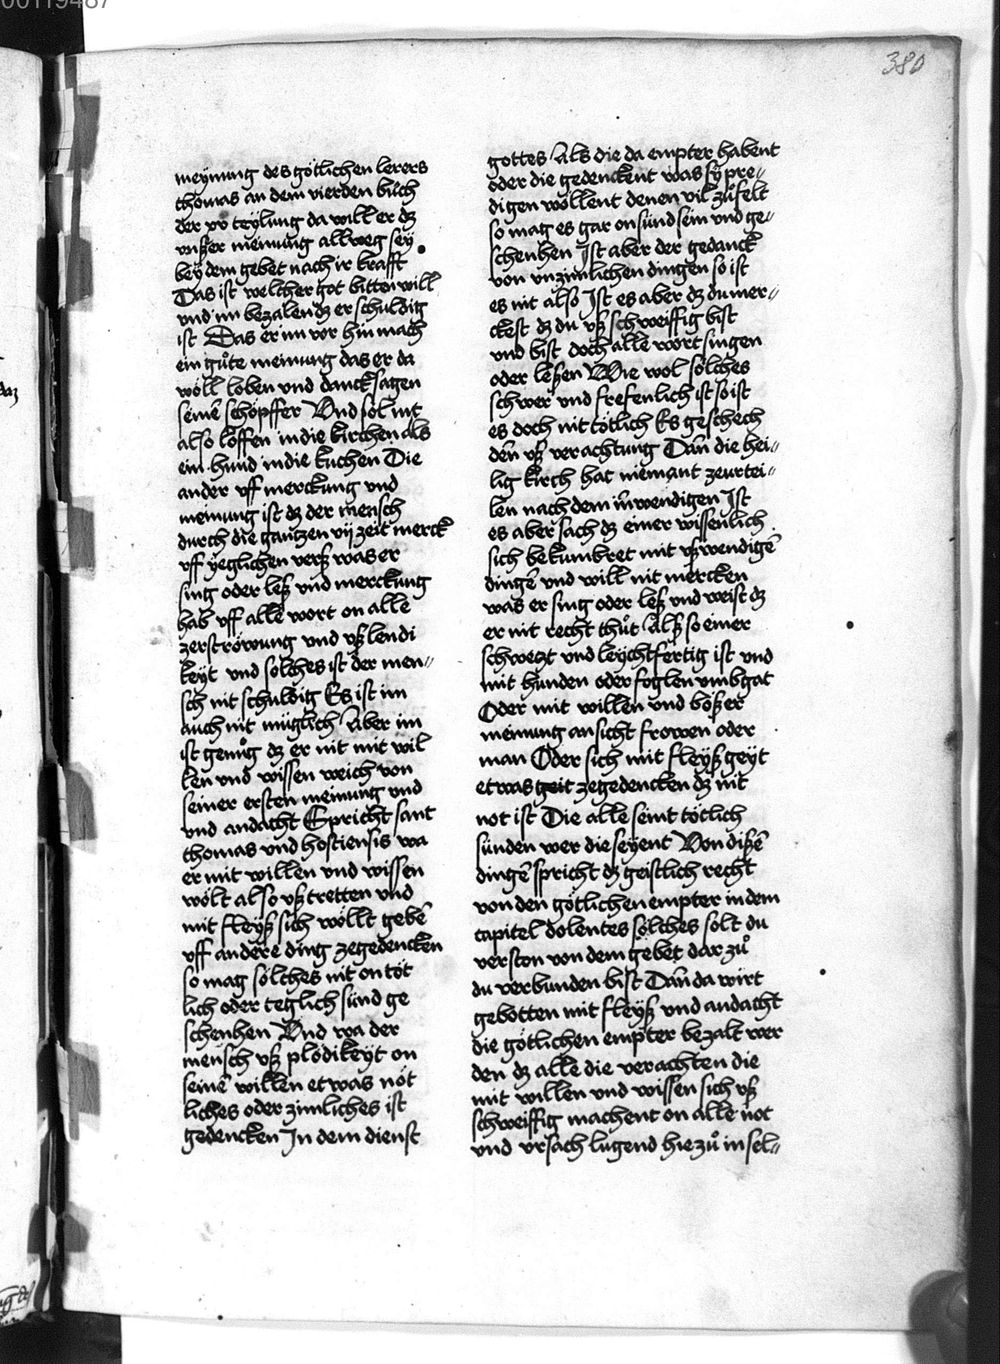 00119487
380
meÿnung des götlichen lerers
thomas an dem vierden bůch
der xv teÿlung da will er dz
vnßer meinung allweg seÿ
beÿ dem gebet nach ir krafft
Das ist welcher got bitten will
vnd im bezalen dz er schuldig
ist Das er im vor hin mach
ein gůte meinung das er da
wöll loben vnd dancksagen
seinē schöpffer Vnd sol nit
also löffen in die kirchen als
ein hund in die kuchen Die
ander vff merckung vnd
meinung ist dz der mensch
durch die gantzen vij zeit merck
vff ÿeglichen verß was er
sing oder leß vnd merckung
hab vff alle wort on alle
zerströwung vnd vßlendi
keÿt vnd solches ist der men〃
sch nit schuldig Es ist im
auch nit müglich Aber im
ist genůg dz er nit mit wil
len vnd wissen weich von
seiner ersten meinung vnd
vnd andacht Spricht sant
thomas vnd hostiensis wa
er mit willen vnd wissen
wölt also vß tretten vnd
mit fleÿß sich wöllt gebē
vff andere ding zegedencken
so mag sölches nit on töt
lich oder teglich sünd ge
schenhen Vnd wa der
mensch vß plödikeÿt on
seinē willen etwas nöt
liches oder zimliches ist
gedencken In dem dienst
gottes Als die da empter habent
oder die gedenckent was sÿ pre〃
digen wöllent denen vil zůfelt
so mag es gar on sünd sein vnd ge〃
schenhen Ist aber der gedanck
von vnzimlichen dingen so ist
es nit also Ist es aber dz du mer〃
ckest dz du vß schweiffig bist
vnd bist doch alle wort singen
oder leßen Wie wol sölches
schwer vnd frefenlich ist so ist
es doch nit tötlich Es geschech
dēn vß verachtung Dān die hei〃
lig kirch hat niemant ze vrtei〃
len nach dem īnwendigen Ist
es aber sach dz einer wissenlich
sich bekumbret mit vßwendigē
dingē vnd will nit mercken
was er sing oder leß vnd weist dz
er nit recht thůt Alß so einer
schwetzt vnd leÿchtfertig ist vnd
mit hunden oder foglen vmbgat
Oder mit willen vnd bößer
meinung an sicht frowen oder
man Oder sich mit fleÿß geÿt
etwas geit ze gedencken dz nit
not ist Die alle seint tötlich
sünden wer die seÿent Von dißē
dingē spricht dz geistlich recht
von den götlichen empter in dem
capitel dolentes sölches solt du
verston von dem gebet dar zů
du verbunden bist Dān da wirt
gebotten mit fleÿß vnd andacht
die götlichen empter bezalt wer
den dz alle die verachten die
mit willen vnd wissen sich vß
schweiffig machent on alle not
vnd vrsach lugend hie zů in sel〃